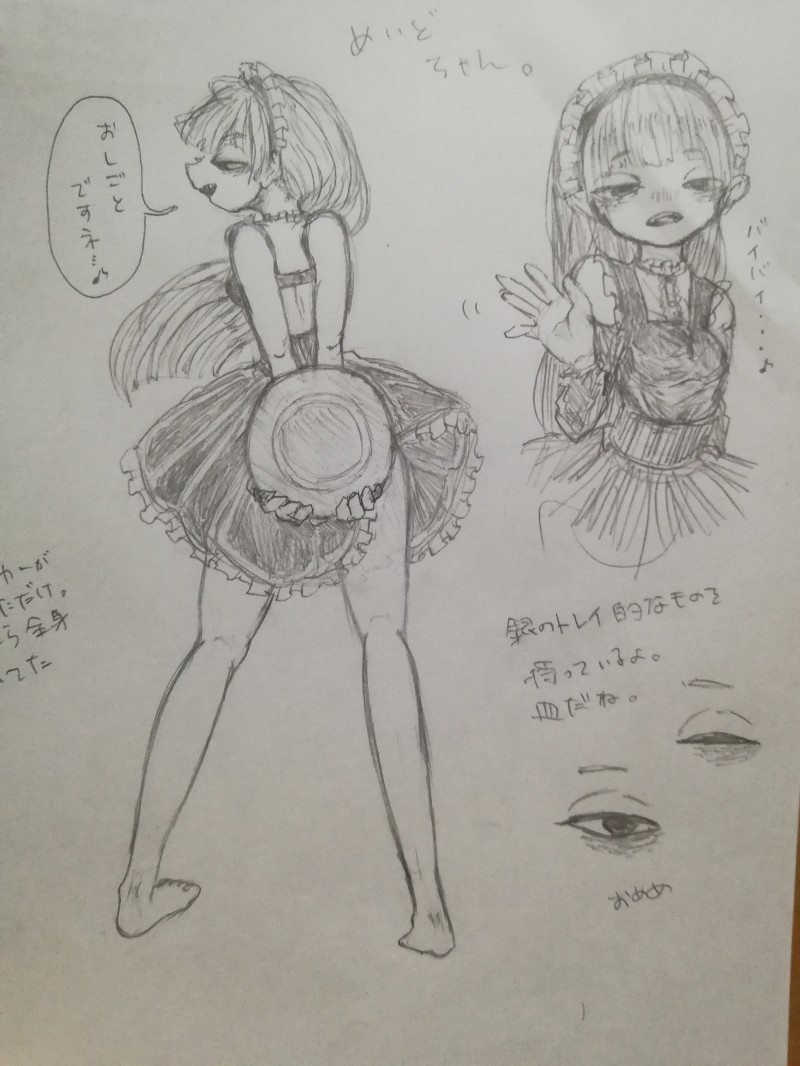 めいど
ちゃん。
おしごと
ですネ…♪
バイバイ・・・・♪
銀のトレイ的なものを
持っているよ。
皿だね。
おめめ
カーが
ただけ。
ら全身
いてた